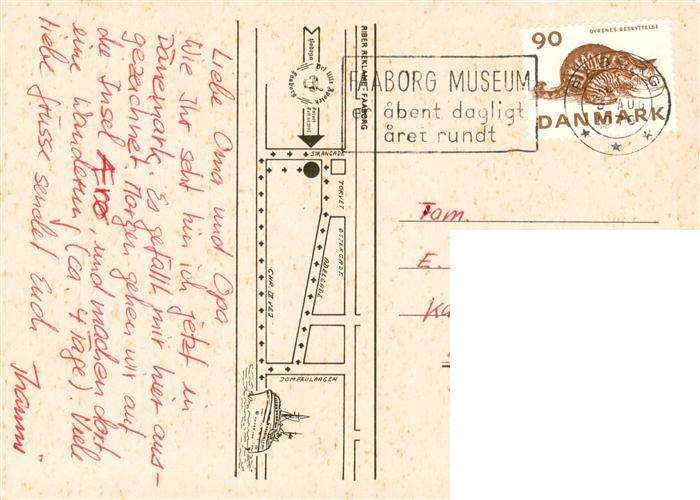 Liebe Oma und Opa
Wie Ihr seht bin ich jetzt in
Dänemark. Es gefällt mir hier aus-
gezeichnet. Morgen gehen wir auf
die Insel Ærø, und machen dort
eine Wanderung (ca. 4 Tage). Viele
liebe Grüsse sendet Euch
RIBER REKLAME, FAABORG
Det lille Apotek
Faaborg
STRANGADE
TORVET
ØSTERGADE
ADELGADE
CHR. IX VEJ
JOMFRULAAGEN
FAABORG MUSEUM
åbent dagligt
året rundt
90
DYRENES BESKYTTELSE
DANMARK
Fam.
E.
Ka